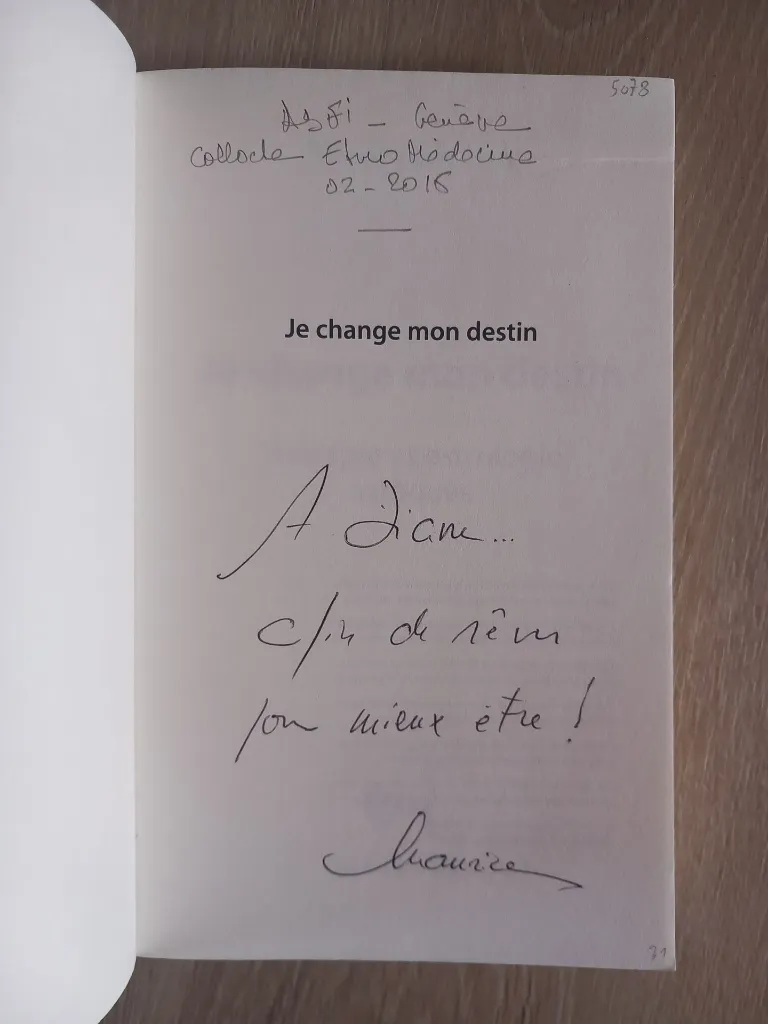 5078
Asfi - Genève
Colloque Ethno Médecine
02 - 2016
Je change mon destin
A Diane...
de rêver
pour mieux être !
Maurice
31